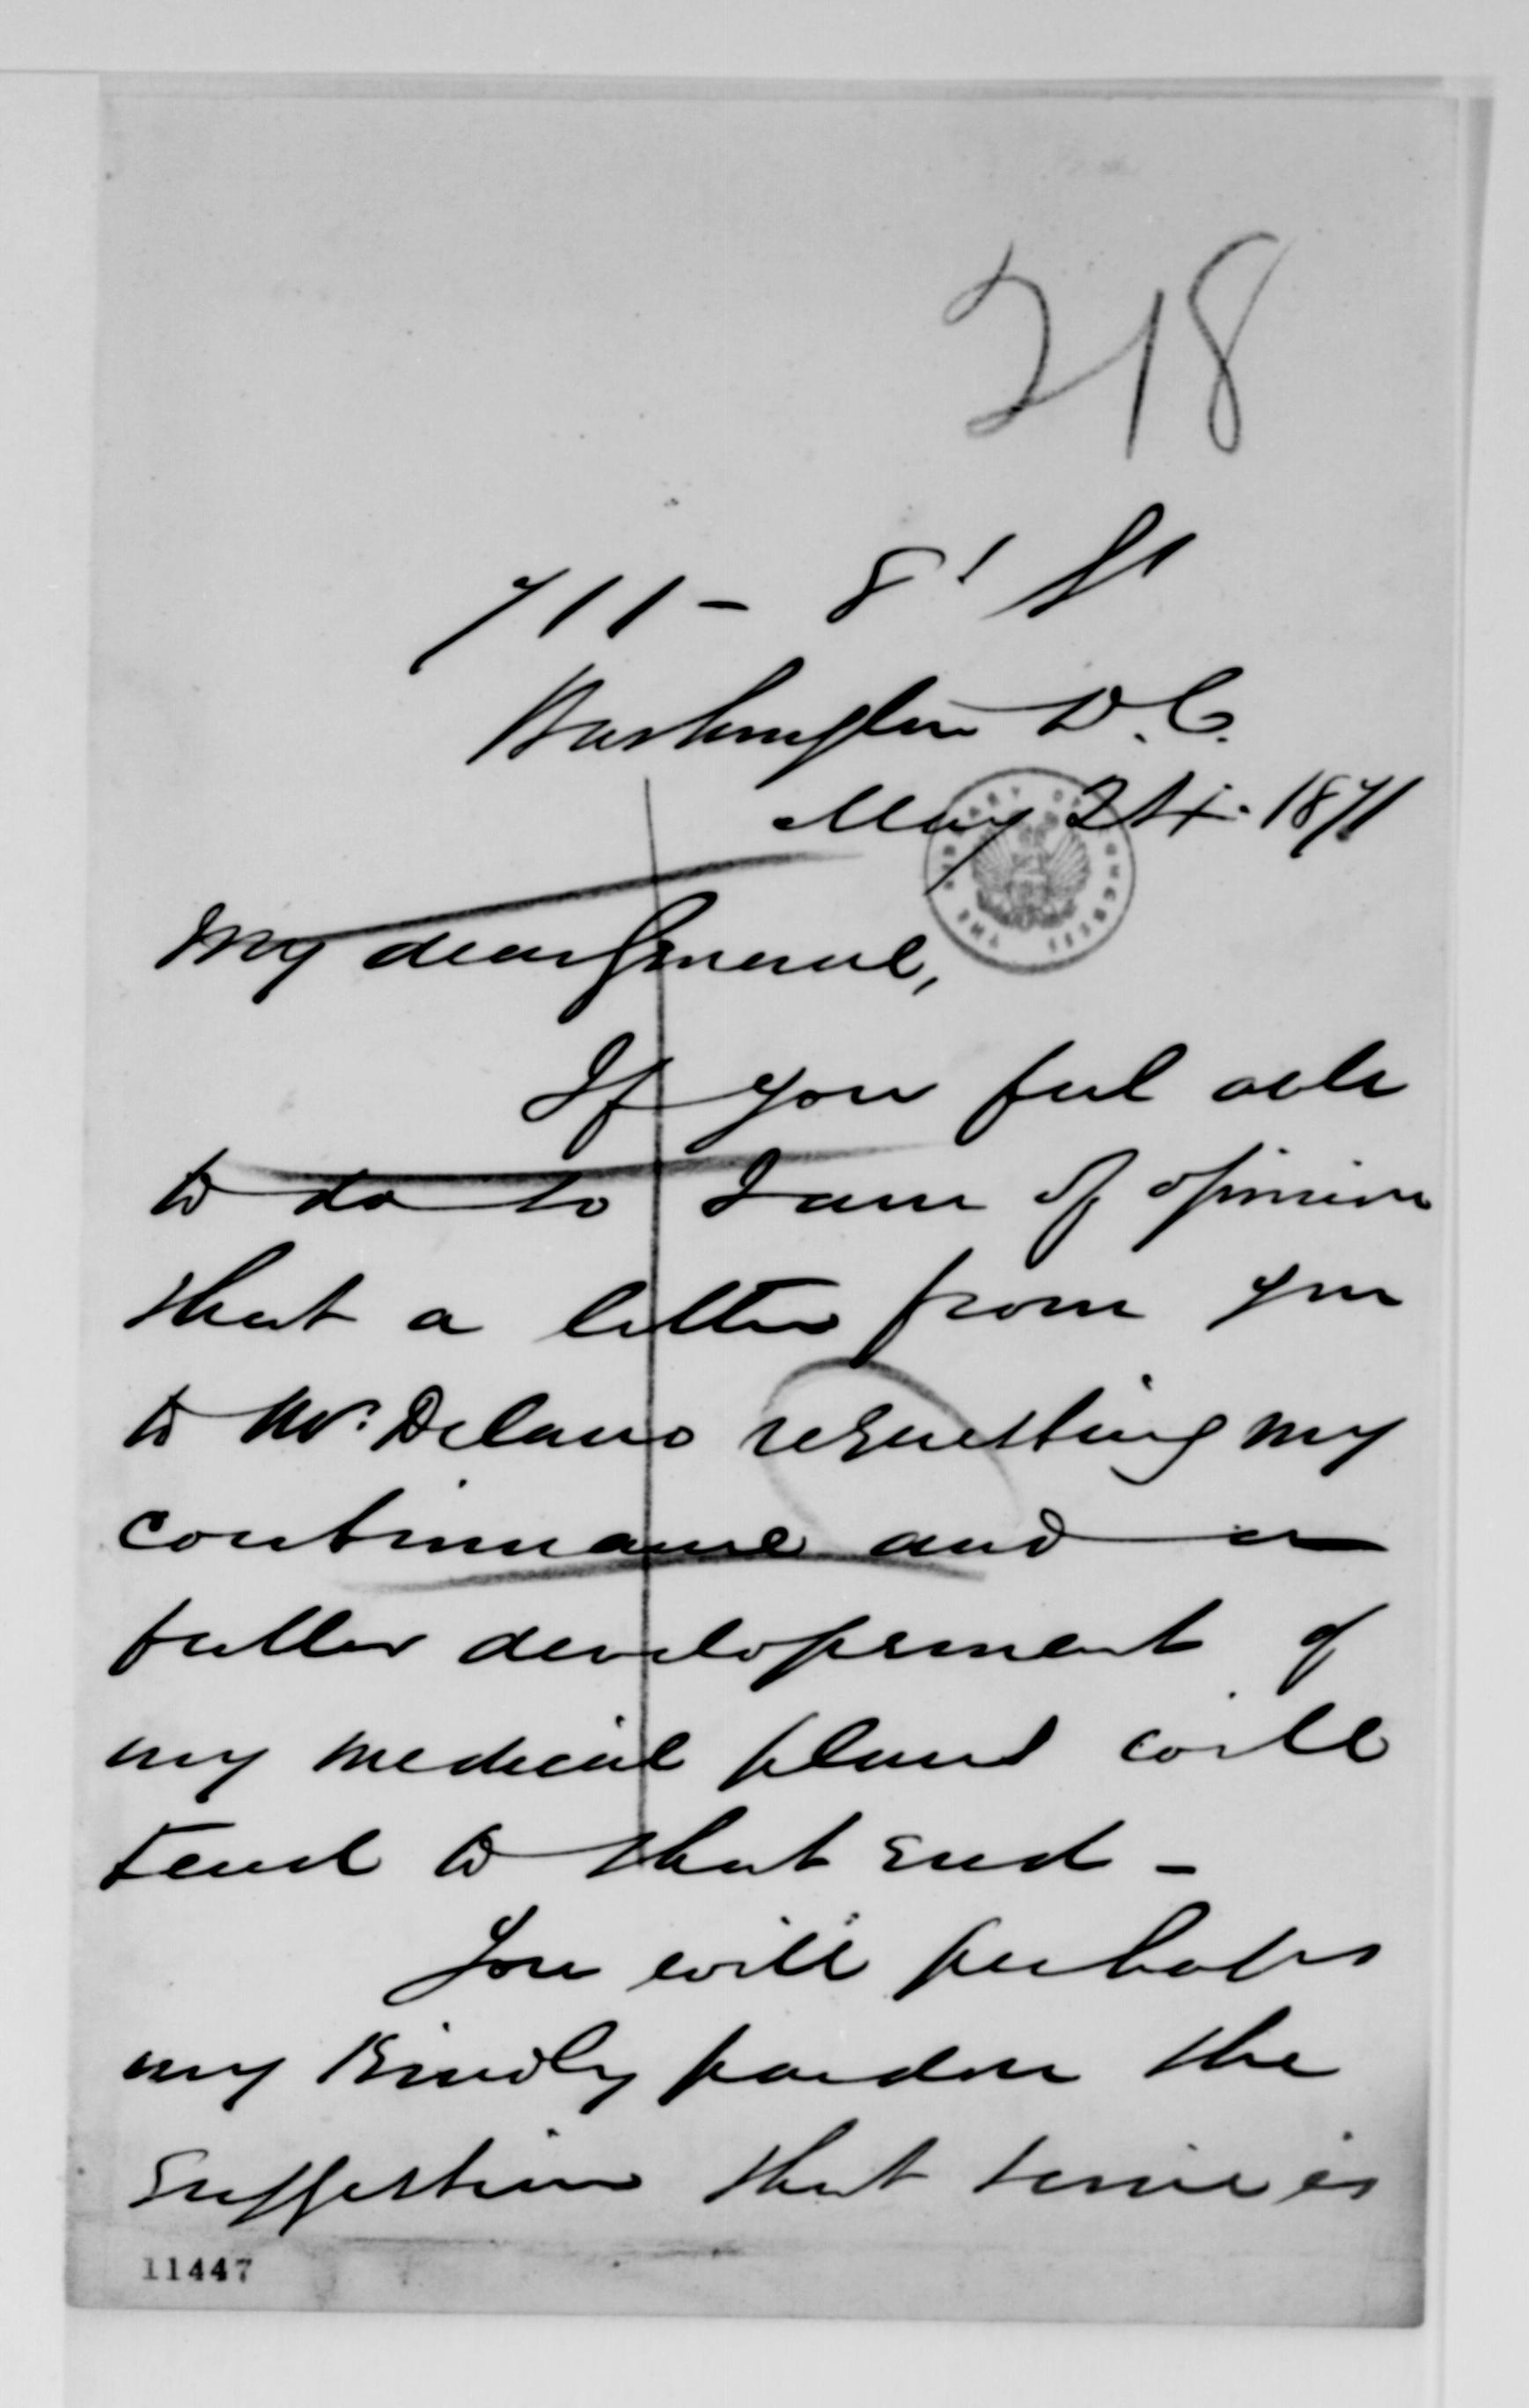 218
711 - 8' St
Washington D.C.
May 24. 1871
THE LIBRARY OF CONGRESS
My dear General,
If you feel able
to do so I am of opinion
that a letter from you
to Mr. Delano requesting my
continuance and a
fuller development of
my medical plans will
tend to that end -
You will perhaps
my kindly pardon the
suggestion that time is
11447